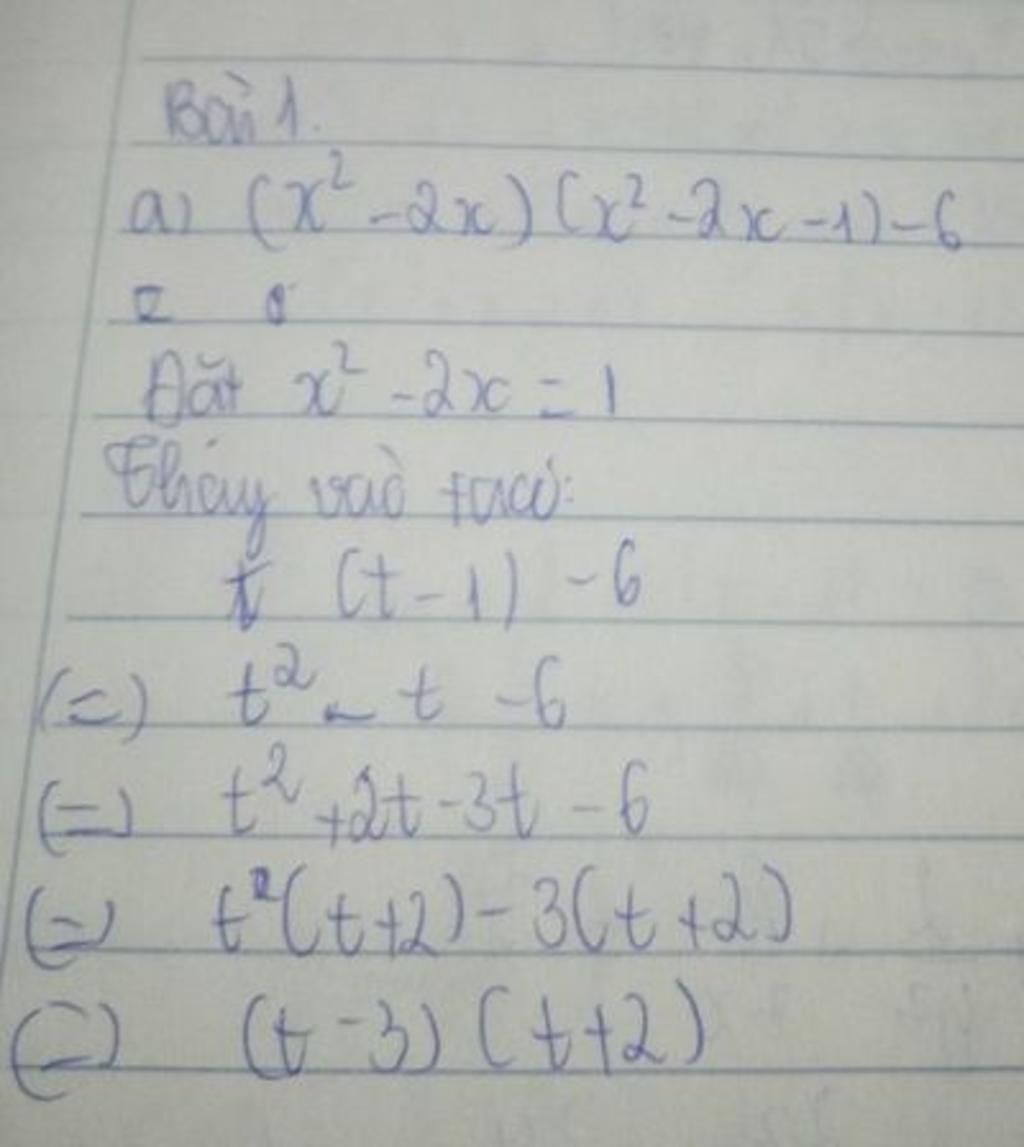 Bài 1.
a) (x² - 2x) (x² - 2x - 1) - 6
Đặt x² - 2x = 1
Thay vào ta có:
t (t - 1) - 6
(=) t² - t - 6
(=) t² + 2t - 3t - 6
(=) t (t + 2) - 3(t + 2)
(=) (t - 3) (t + 2)